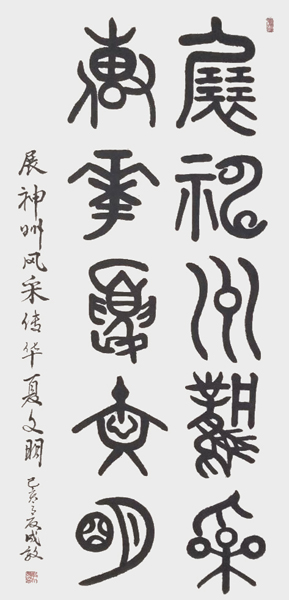 展神州風采
傳華夏文明
展神州风采传华夏文明
己亥